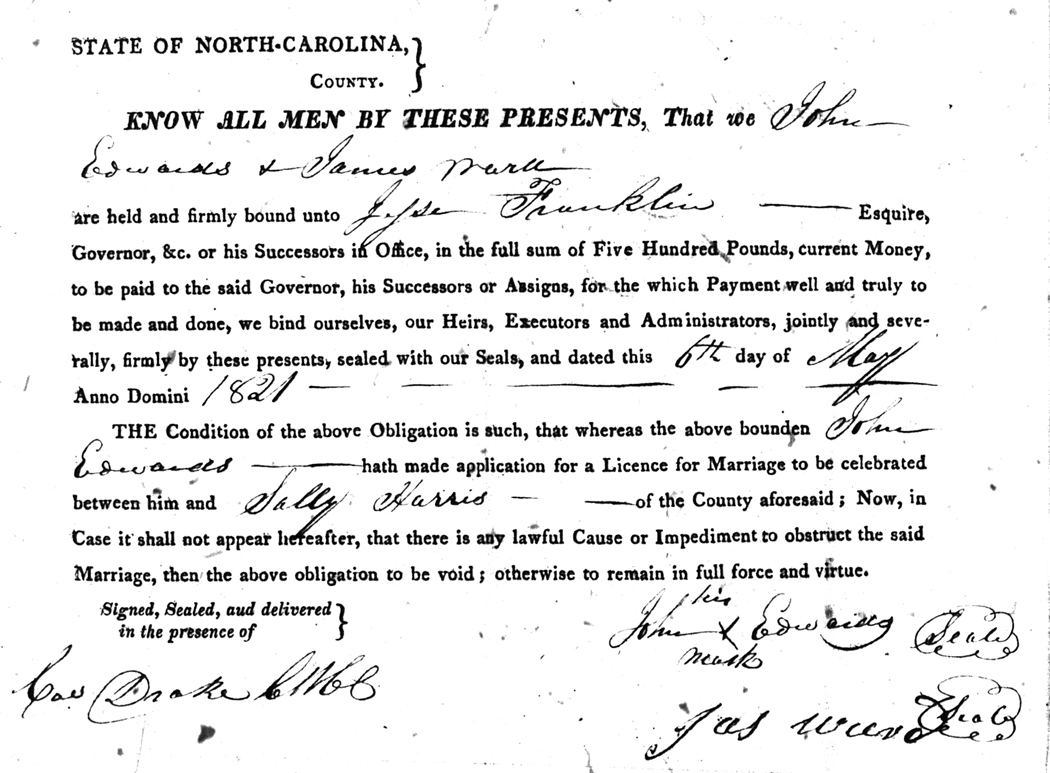 STATE OF NORTH-CAROLINA, }
COUNTY.
KNOW ALL MEN BY THESE PRESENTS, That we John
Edwards & James Ward
are held and firmly bound unto Jesse Franklin — Esquire,
Governor, &c. or his Successors in Office, in the full sum of Five Hundred Pounds, current Money,
to be paid to the said Governor, his Successors or Assigns, for the which Payment well and truly to
be made and done, we bind ourselves, our Heirs, Executors and Administrators, jointly and seve-
rally, firmly by these presents, sealed with our Seals, and dated this 6th day of May
Anno Domini 1821 —
THE Condition of the above Obligation is such, that whereas the above bounden John
Edwards — hath made application for a Licence for Marriage to be celebrated
between him and Sally Harris — of the County aforesaid ; Now, in
Case it shall not appear hereafter, that there is any lawful Cause or Impediment to obstruct the said
Marriage, then the above obligation to be void ; otherwise to remain in full force and virtue.
Signed, Sealed, aud delivered }
in the presence of
his
John X Edwards (Seal)
mark
Drake
Jas Ward (Seal)